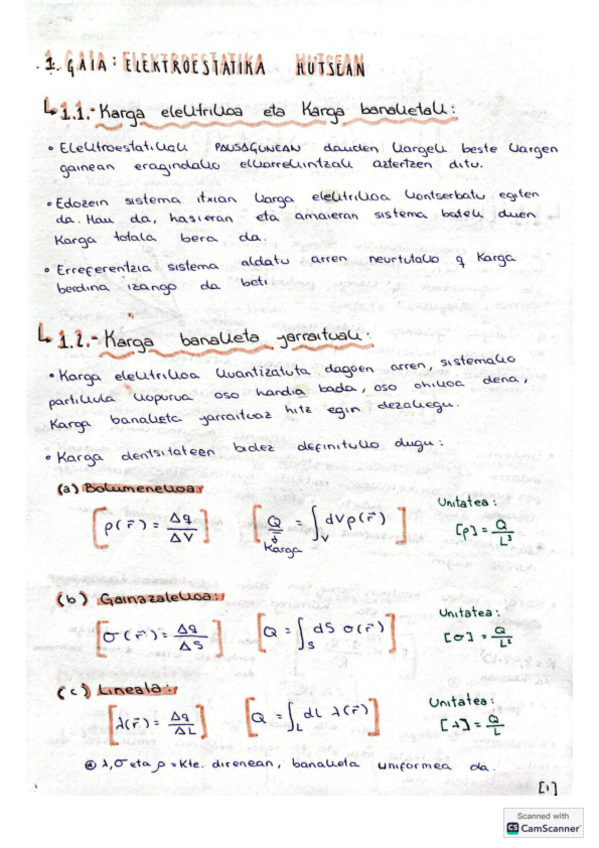 1. GAIA: ELEKTROESTATIKA HUTSEAN
↳ 1.1.- Karga elektrikoa eta Karga banaketak:
• Elektroestatikak PAUSAGUNEAN dauden kargek beste kargen
gainean eragindako elkarrekintzak aztertzen ditu.
• Edozein sistema itxian karga elektrikoa kontserbatu egiten
da. Hau da, hasieran eta amaieran sistema batek duen
Karga totala bera da.
• Erreferentzia sistema aldatu arren neurtutako q Karga
berdina izango da beti.
↳ 1.2.- Karga banaketa jarraituak:
• Karga elektrikoa kuantizatuta dagoen arren, sistemako
partikula kopurua oso handia bada, oso ohikoa dena,
Karga banaketa jarraituaz hitz egin dezakegu.
• Karga dentsitateen bidez definituko dugu:
(a) Bolumenekoa:
[ρ(r⃗) = Δq/ΔV] [Q = ∫_V dV ρ(r⃗)] Unitatea:
⇓ Karga [ρ] = Q/L³
(b) Gainazalekoa: Unitatea:
[σ(r⃗) = Δq/ΔS] [Q = ∫_S dS σ(r⃗)] [σ] = Q/L²
(c) Lineala: Unitatea:
[λ(r⃗) = Δq/ΔL] [Q = ∫_L dL λ(r⃗)] [λ] = Q/L
⊛ λ, σ eta ρ = Kte. direnean, banaketa uniformea da.
[1]
Scanned with
CS CamScanner